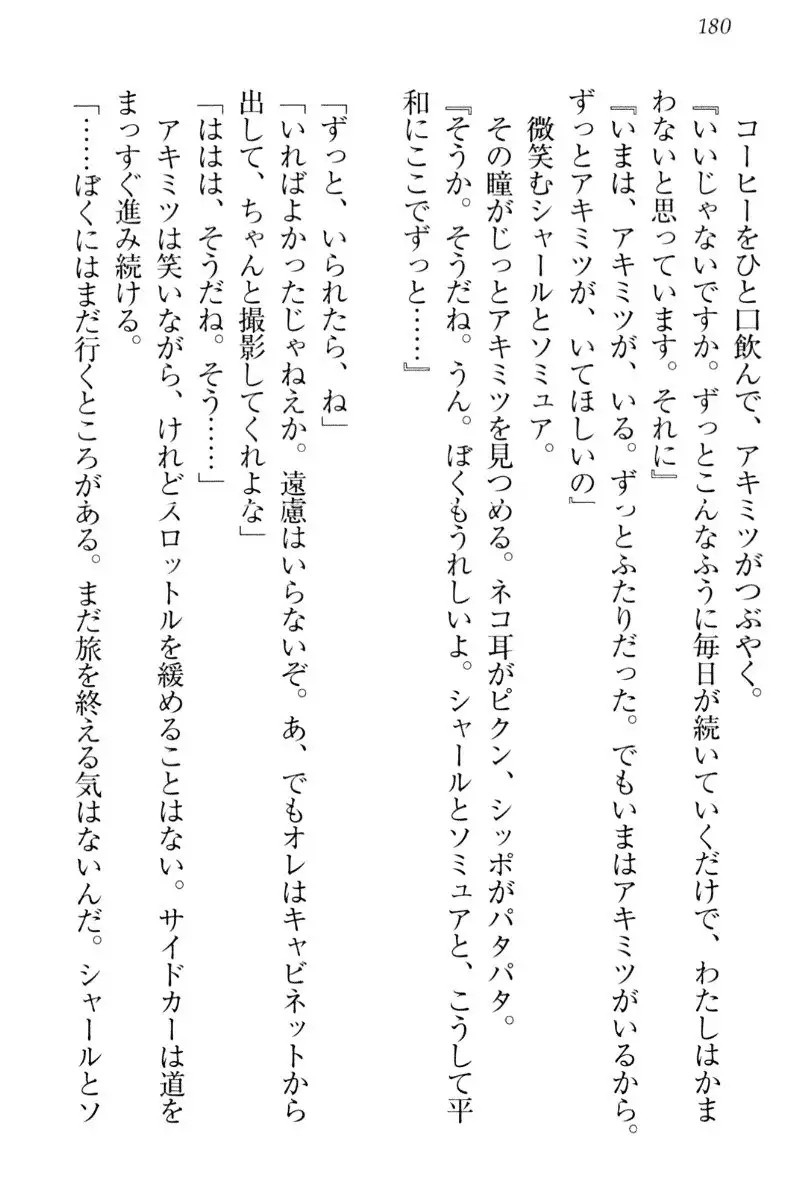 180
コーヒーをひと口飲んで、アキミツがつぶやく。
『いいじゃないですか。ずっとこんなふうに毎日が続いていくだけで、わたしはかま
わないと思っています。それに』
『いまは、アキミツが、いる。ずっとふたりだった。でもいまはアキミツがいるから。
ずっとアキミツが、いてほしいの』
微笑むシャールとソミュア。
その瞳がじっとアキミツを見つめる。ネコ耳がピクン、シッポがパタパタ。
『そうか。そうだね。うん。ぼくもうれしいよ。シャールとソミュアと、こうして平
和にここでずっと……』
「ずっと、いられたら、ね」
「いればよかったじゃねえか。遠慮はいらないぞ。あ、でもオレはキャビネットから
出して、ちゃんと撮影してくれよな」
「ははは、そうだね。そう……」
アキミツは笑いながら、けれどスロットルを緩めることはない。サイドカーは道を
まっすぐ進み続ける。
「……ぼくにはまだ行くところがある。まだ旅を終える気はないんだ。シャールとソ